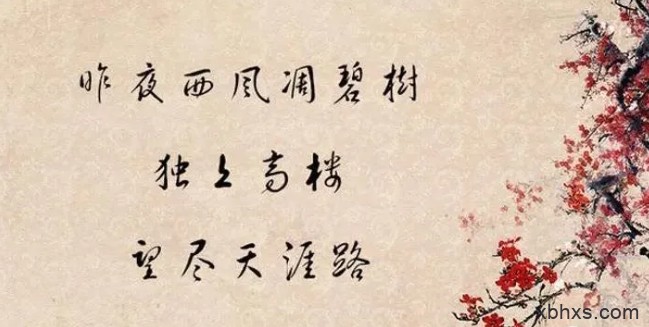 昨夜西风凋碧樹
独上高楼
望尽天涯路
xbhxs.com